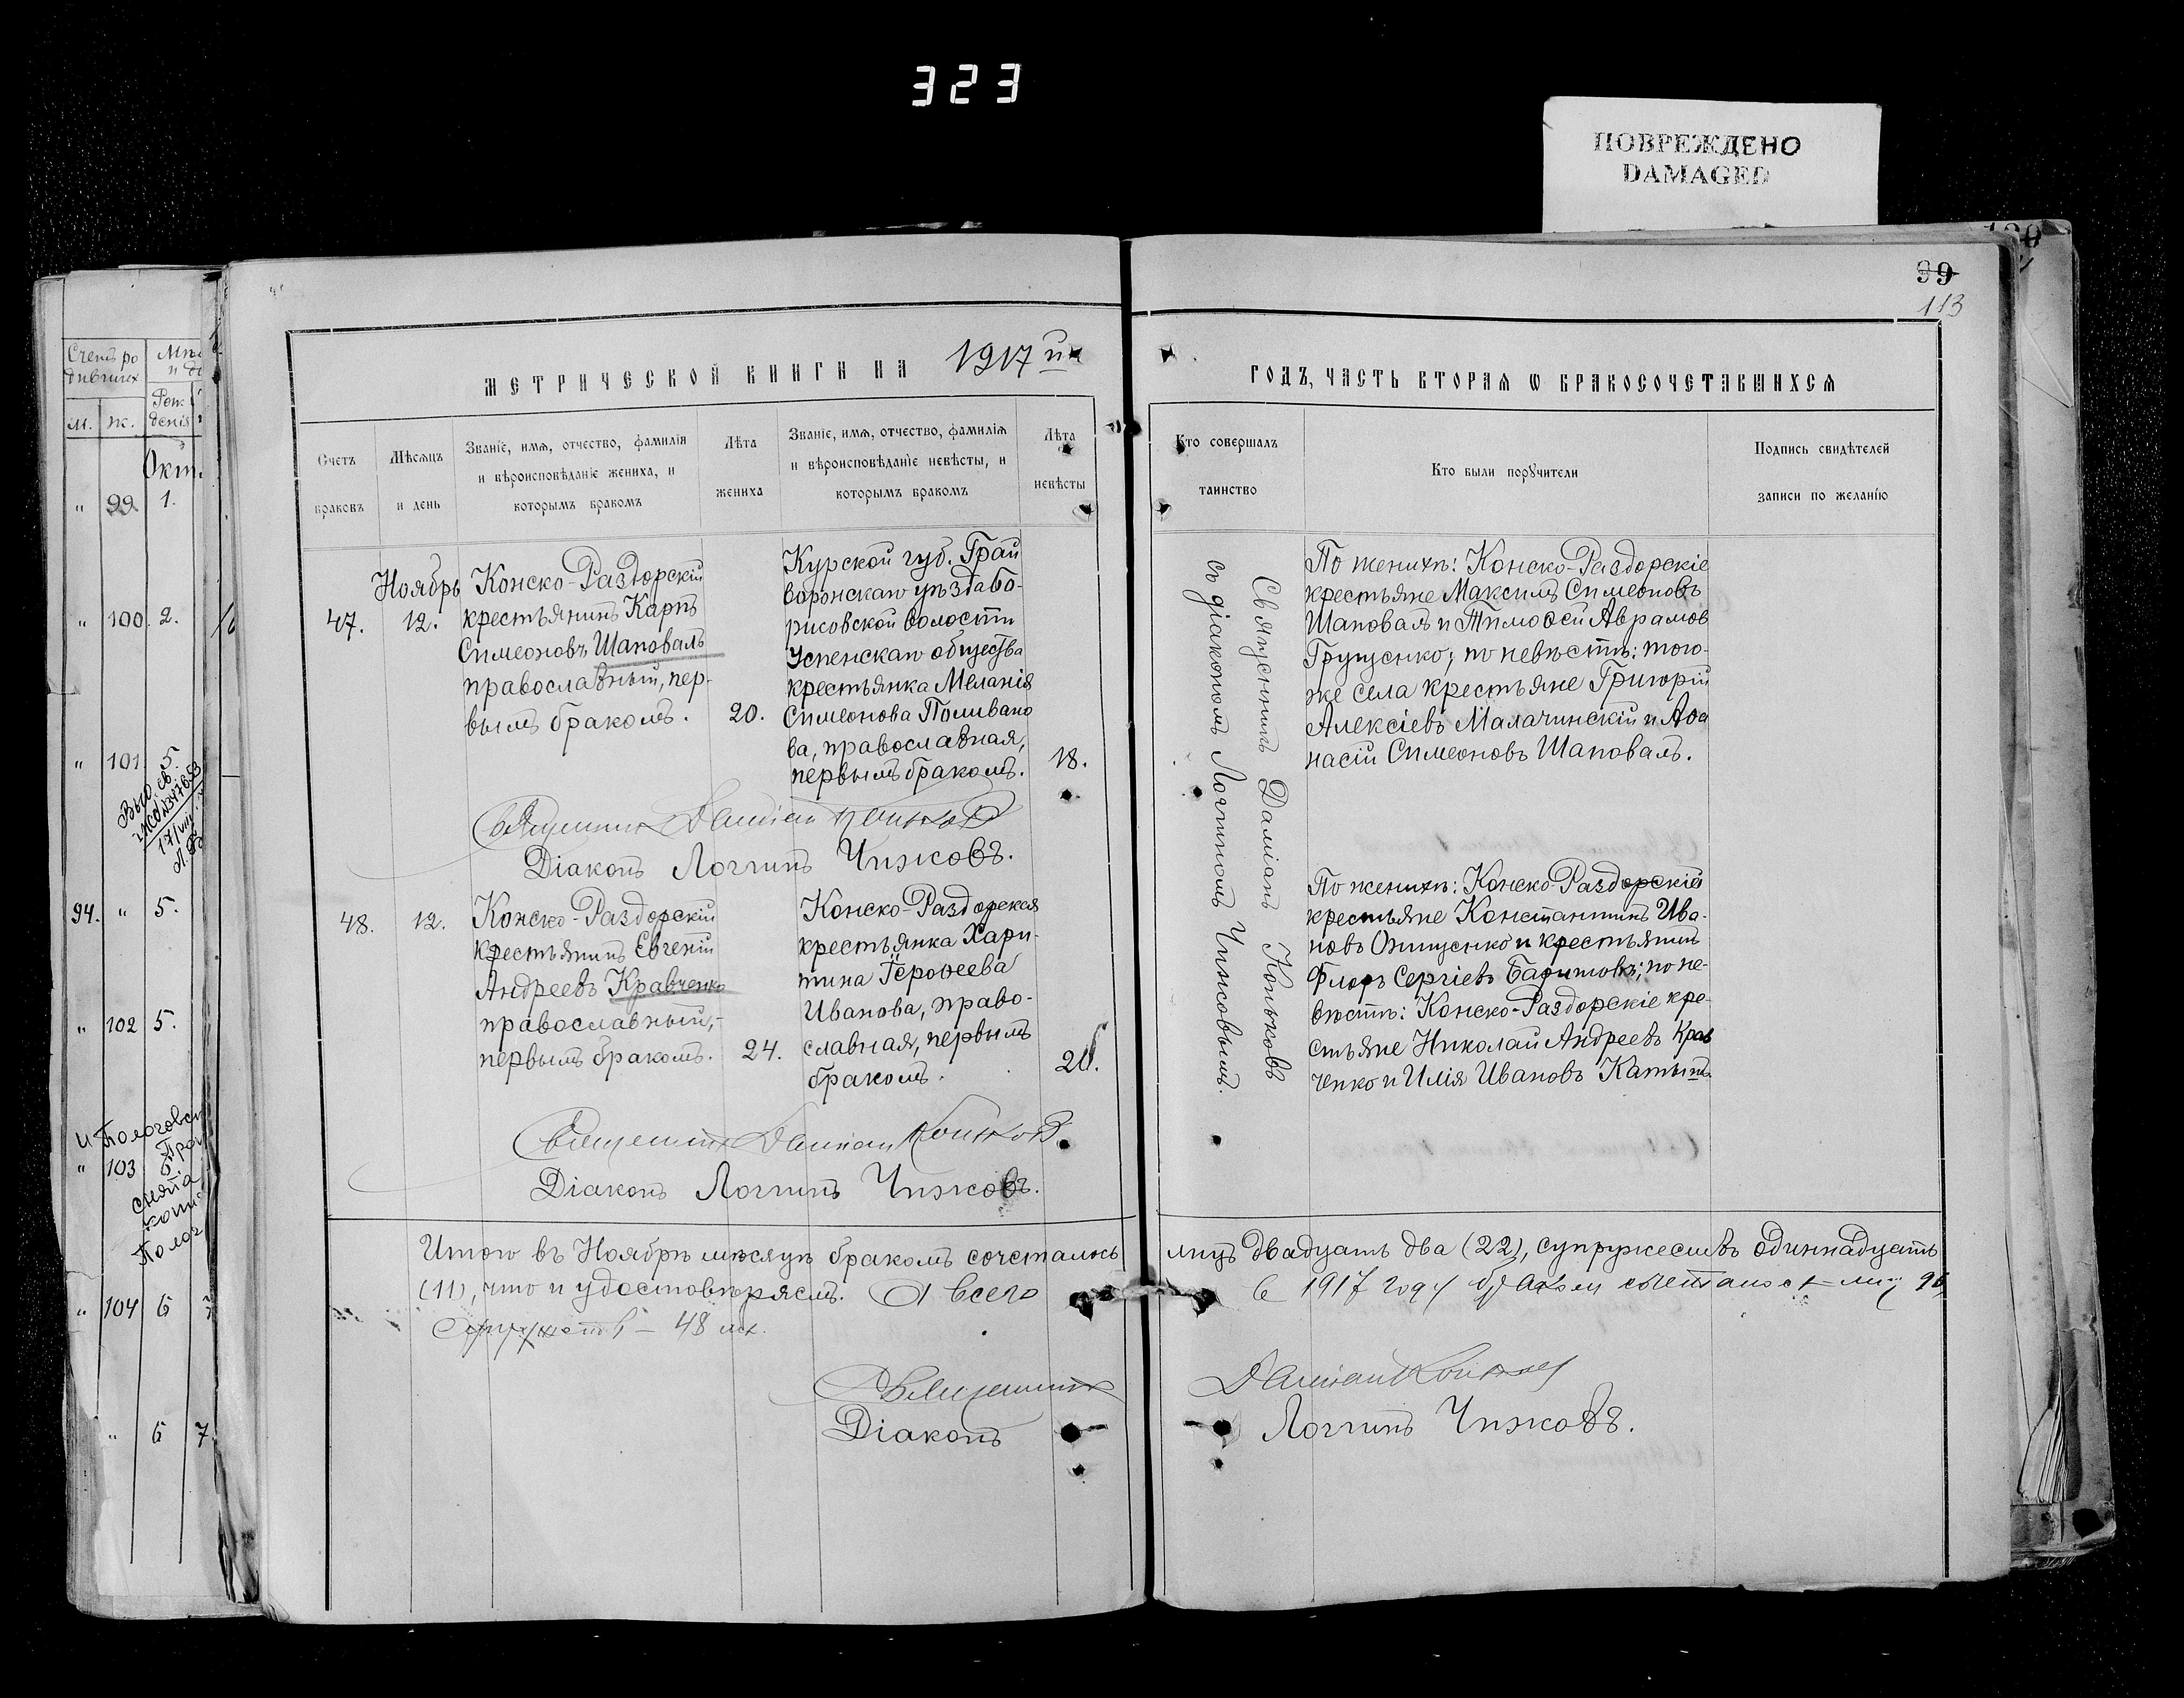 323
ПОВРЕЖДЕНО
DAMAGED
99
113
МЕТРИЧЕСКОЙ КНИГИ НА 1917 й
ГОДЪ, ЧАСТЬ ВТОРАЯ Ѡ БРАКОСОЧЕТАВШИХСЯ
Счетъ браковъ
Мѣсяцъ и день
Званіе, имя, отчество, фамилія
и вѣроисповѣданіе жениха, и
которымъ бракомъ
Лѣта
жениха
Званіе, имя, отчество, фамилія
и вѣроисповѣданіе невѣсты, и
которымъ бракомъ
Лѣта
невѣсты
Кто совершалъ
таинство
Кто были поручители
Подпись свидѣтелей
записи по желанію
47.
Ноябрь
12.
Конско-Раздорскій
крестьянинъ Карпъ
Симеоновъ Шаповалъ
православный, пер-
вымъ бракомъ.
20.
Курской губ. Грай
воронскаго уѣзда Бо-
рисовской волости
Успенскаго общества
крестьянка Меланія
Симеонова Поливано
ва, православная,
первымъ бракомъ.
18.
Священникъ Даміанъ Коньковъ
съ діакономъ Логгиномъ Чижовымъ.
По женихѣ: Конско-Раздорскіе
крестьяне Максимъ Симеоновъ
Шаповалъ и Тимоѳей Аврамов
Грущенко; по невѣстѣ: того-
же села крестьяне Григорій
Алексіевъ Малачинскій и Аѳа
насій Симеоновъ Шаповалъ.
Священникъ Даміан Коньков
Діаконъ Логгинъ Чижовъ.
48.
12.
Конско-Раздорскій
крестьянинъ Евгеній
Андреевъ Кравченко
православный,-
первымъ бракомъ.
24.
Конско-Раздорская
крестьянка Хари-
тина Героѳеева
Иванова, право-
славная, первымъ
бракомъ.
20.
По женихѣ: Конско-Раздорскій
крестьяне Константинъ Ива-
новъ Онищенко и крестьянинъ
Флоръ Сергіевъ; по не-
вѣстѣ: Конско-Раздорскіе кре-
стьяне Николай Андреевъ Крав
ченко и Илія Ивановъ
Священникъ Даміан Коньков
Діаконъ Логгинъ Чижовъ.
Итого въ Ноябрѣ мѣсяцѣ бракомъ сочеталось лицъ двадцать два (22), супружествъ одиннадцать
(11), что и удостовѣряемъ. А всего в 1917 году браком сочеталось лиц 96
Супружеств – 48
Священникъ Даміан Коньков
Діаконъ Логгинъ Чижовъ.
Счетъ ро
дивших
м.
ж.
Окт.
99.
1.
100.
2.
101
5.
94.
5.
102
5.
103
6.
104
6
6
7.